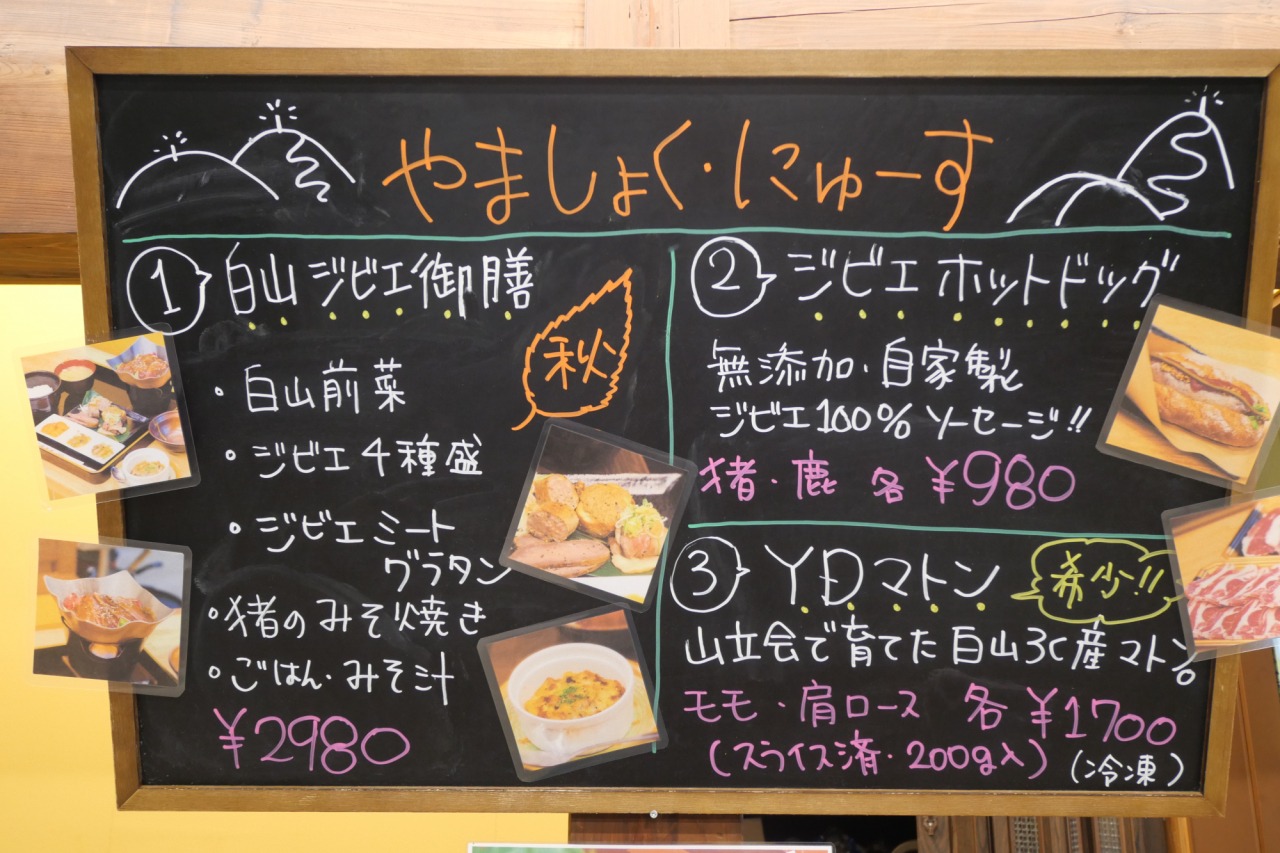 やましょく・にゅーす
① 白山ジビエ御膳
秋
・白山前菜
・ジビエ4種盛
・ジビエミート
グラタン
・猪のみそ焼き
・ごはん・みそ汁
¥2980
② ジビエホットドッグ
無添加・自家製
ジビエ100%ソーセージ!!
猪・鹿 各 ¥980
③ YDマトン
希少!!
山立会で育てた白山麓産マトン。
モモ・肩ロース 各 ¥1700
(スライス済・200g入)
(冷凍)